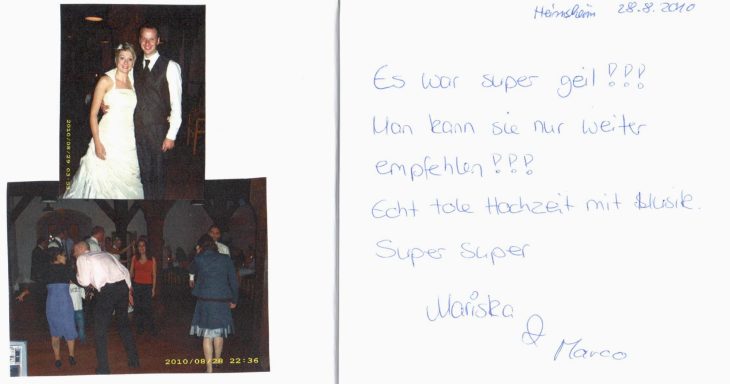 Heimsheim 28.8.2010
Es war super geil!!!
Man kann sie nur weiter
empfehlen!!!
Echt tole Hochzeit mit Musik.
Super Super
Mariska
&
Marco
2010/08/28 22:36